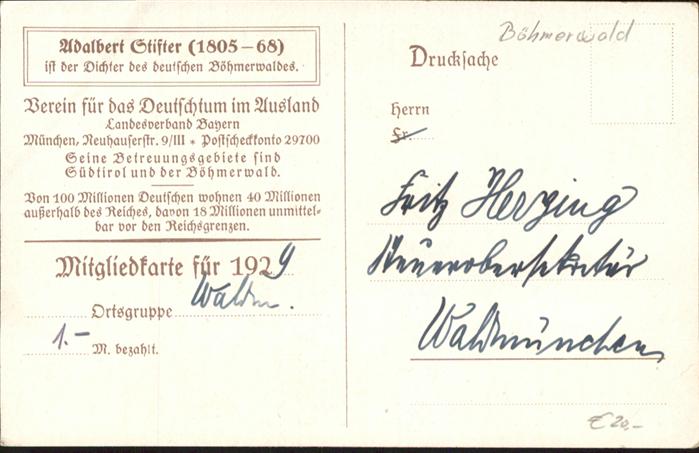 Adalbert Stifter (1805–68)
ist der Dichter des deutschen Böhmerwaldes.
Verein für das Deutschtum im Ausland
Landesverband Bayern
München, Neuhauserstr. 9/III * Postscheckkonto 29700
Seine Betreuungsgebiete sind
Südtirol und der Böhmerwald.
Von 100 Millionen Deutschen wohnen 40 Millionen
außerhalb des Reiches, davon 18 Millionen unmittel-
bar vor den Reichsgrenzen.
Mitgliedkarte für 1929
Ortsgruppe Waldm.
1.-
M. bezahlt.
Böhmerwald
Drucksache
Herrn
Fr.
Fritz Herzing
Steuerobersekretär
Waldmünchen
€ 20,-